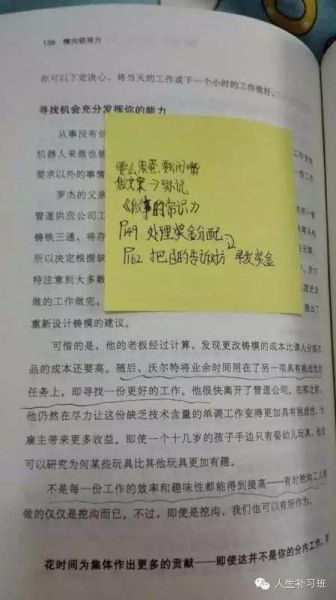 138 横向领导力
你可以下定决心，将当天的工作或下一个小时的工作做好。
寻找机会充分发挥你的能力
从事没有
机器人来做也能
要求以外的事情
罗杰的父亲
管道供应公司工
铸铁三通，将存
所以决定根据缺
特注意到大多数
做的工作做完，
重新设计铸模的建议。
要么滚蛋，要么闭嘴
《做事的常识》
P149 处理奖金分配
P162 把目的告诉对方 导致奖金
可惜的是，他的老板经过计算，发现更改铸模的成本比请人分拣次
品的成本还要高。随后，沃尔特将业余时间用在了另一项具有挑战性的
任务上，即寻找一份更好的工作。他很快离开了管道公司。在那之前，
他仍然在尽力让这份缺乏技术含量的单调工作变得更加具有挑战性，为
雇主带来更多收益。即使一个十几岁的孩子手边只有婴幼儿玩具，他也
可以研究为何某些玩具比其他玩具更加有趣。
不是每一份工作的效率和趣味性都能得到提高——有时挖沟工人
做的仅仅是挖沟而已。不过，即使是挖沟，我们也可以有所作为。
花时间为集体作出更多的贡献——即使这并不是你的分内工作。
人生补习班